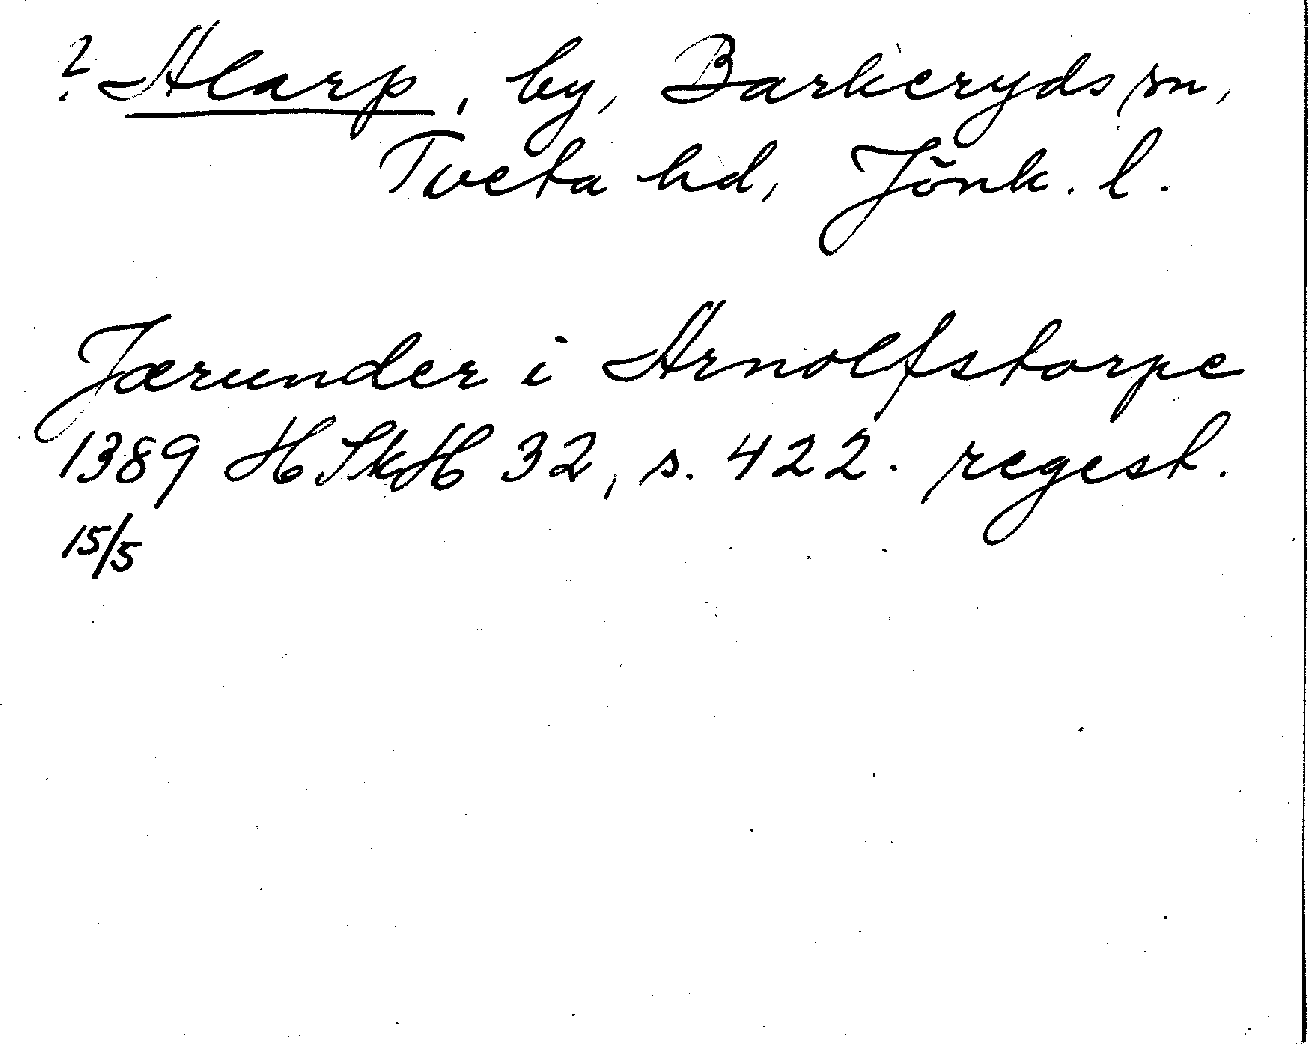 ? Alarp, by, Barkeryds sn,
Tveta hd, Jönk. l.
Jærunder i Arnolfstorpe
1389 HSkH 32, s. 422. regest.
15/5